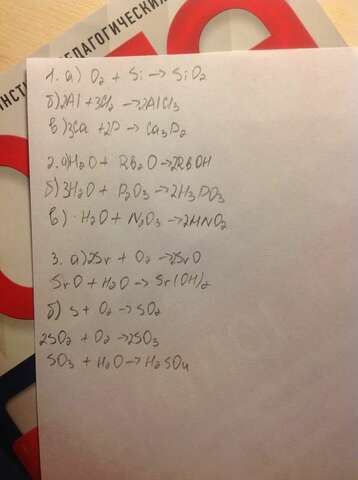 ПЕДАГОГИЧЕСКИЙ
1. а) O₂ + Si → SiO₂
б) 2Al + 3Cl₂ → 2AlCl₃
в) 3Ca + 2P → Ca₃P₂
2. а) H₂O + Rb₂O → 2RbOH
б) 3H₂O + P₂O₃ → 2H₃PO₃
в) H₂O + N₂O₃ → 2HNO₂
3. а) 2Sr + O₂ → 2SrO
SrO + H₂O → Sr(OH)₂
б) S + O₂ → SO₂
2SO₂ + O₂ → 2SO₃
SO₃ + H₂O → H₂SO₄